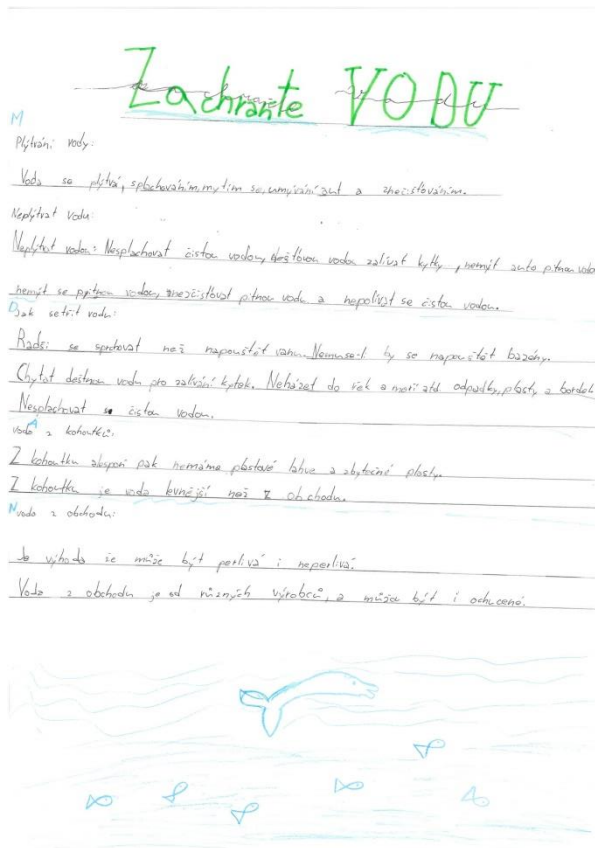 Zachraňte VODU
M
Plýtvání vody:
Voda se plýtvá, splachováním, mytím se, umývání aut a znečisťováním.
Neplýtvat vodu:
Neplýtvat vodou: Nesplachovat čistou vodou, dešťovou vodou zalívat kytky, nemýt auto pitnou vodou
nemýt se pitnou vodou, znezčisťovat pitnou vodu a nepolívat se čistou vodou.
D
Jak šetřit vodu:
Radši se sprchovat než napouštět vanu. Nemuse-l by se napouštět bazény.
Chytat deštnou vodu pro zalívání kytek. Neházet do řek a moří atd odpadky, plasty a bordel
Nesplachovat čistou vodou.
A
voda z kohoutků:
Z kohoutku alespoň pak nemáme plastové lahve a zbytečné plasty.
Z kohoutku je voda levnější než z obchodu.
N
voda z obchodu:
Je výhoda že může být perlivá i neperlivá.
Voda z obchodu je od různých výrobců, a můžou být i ochucené.